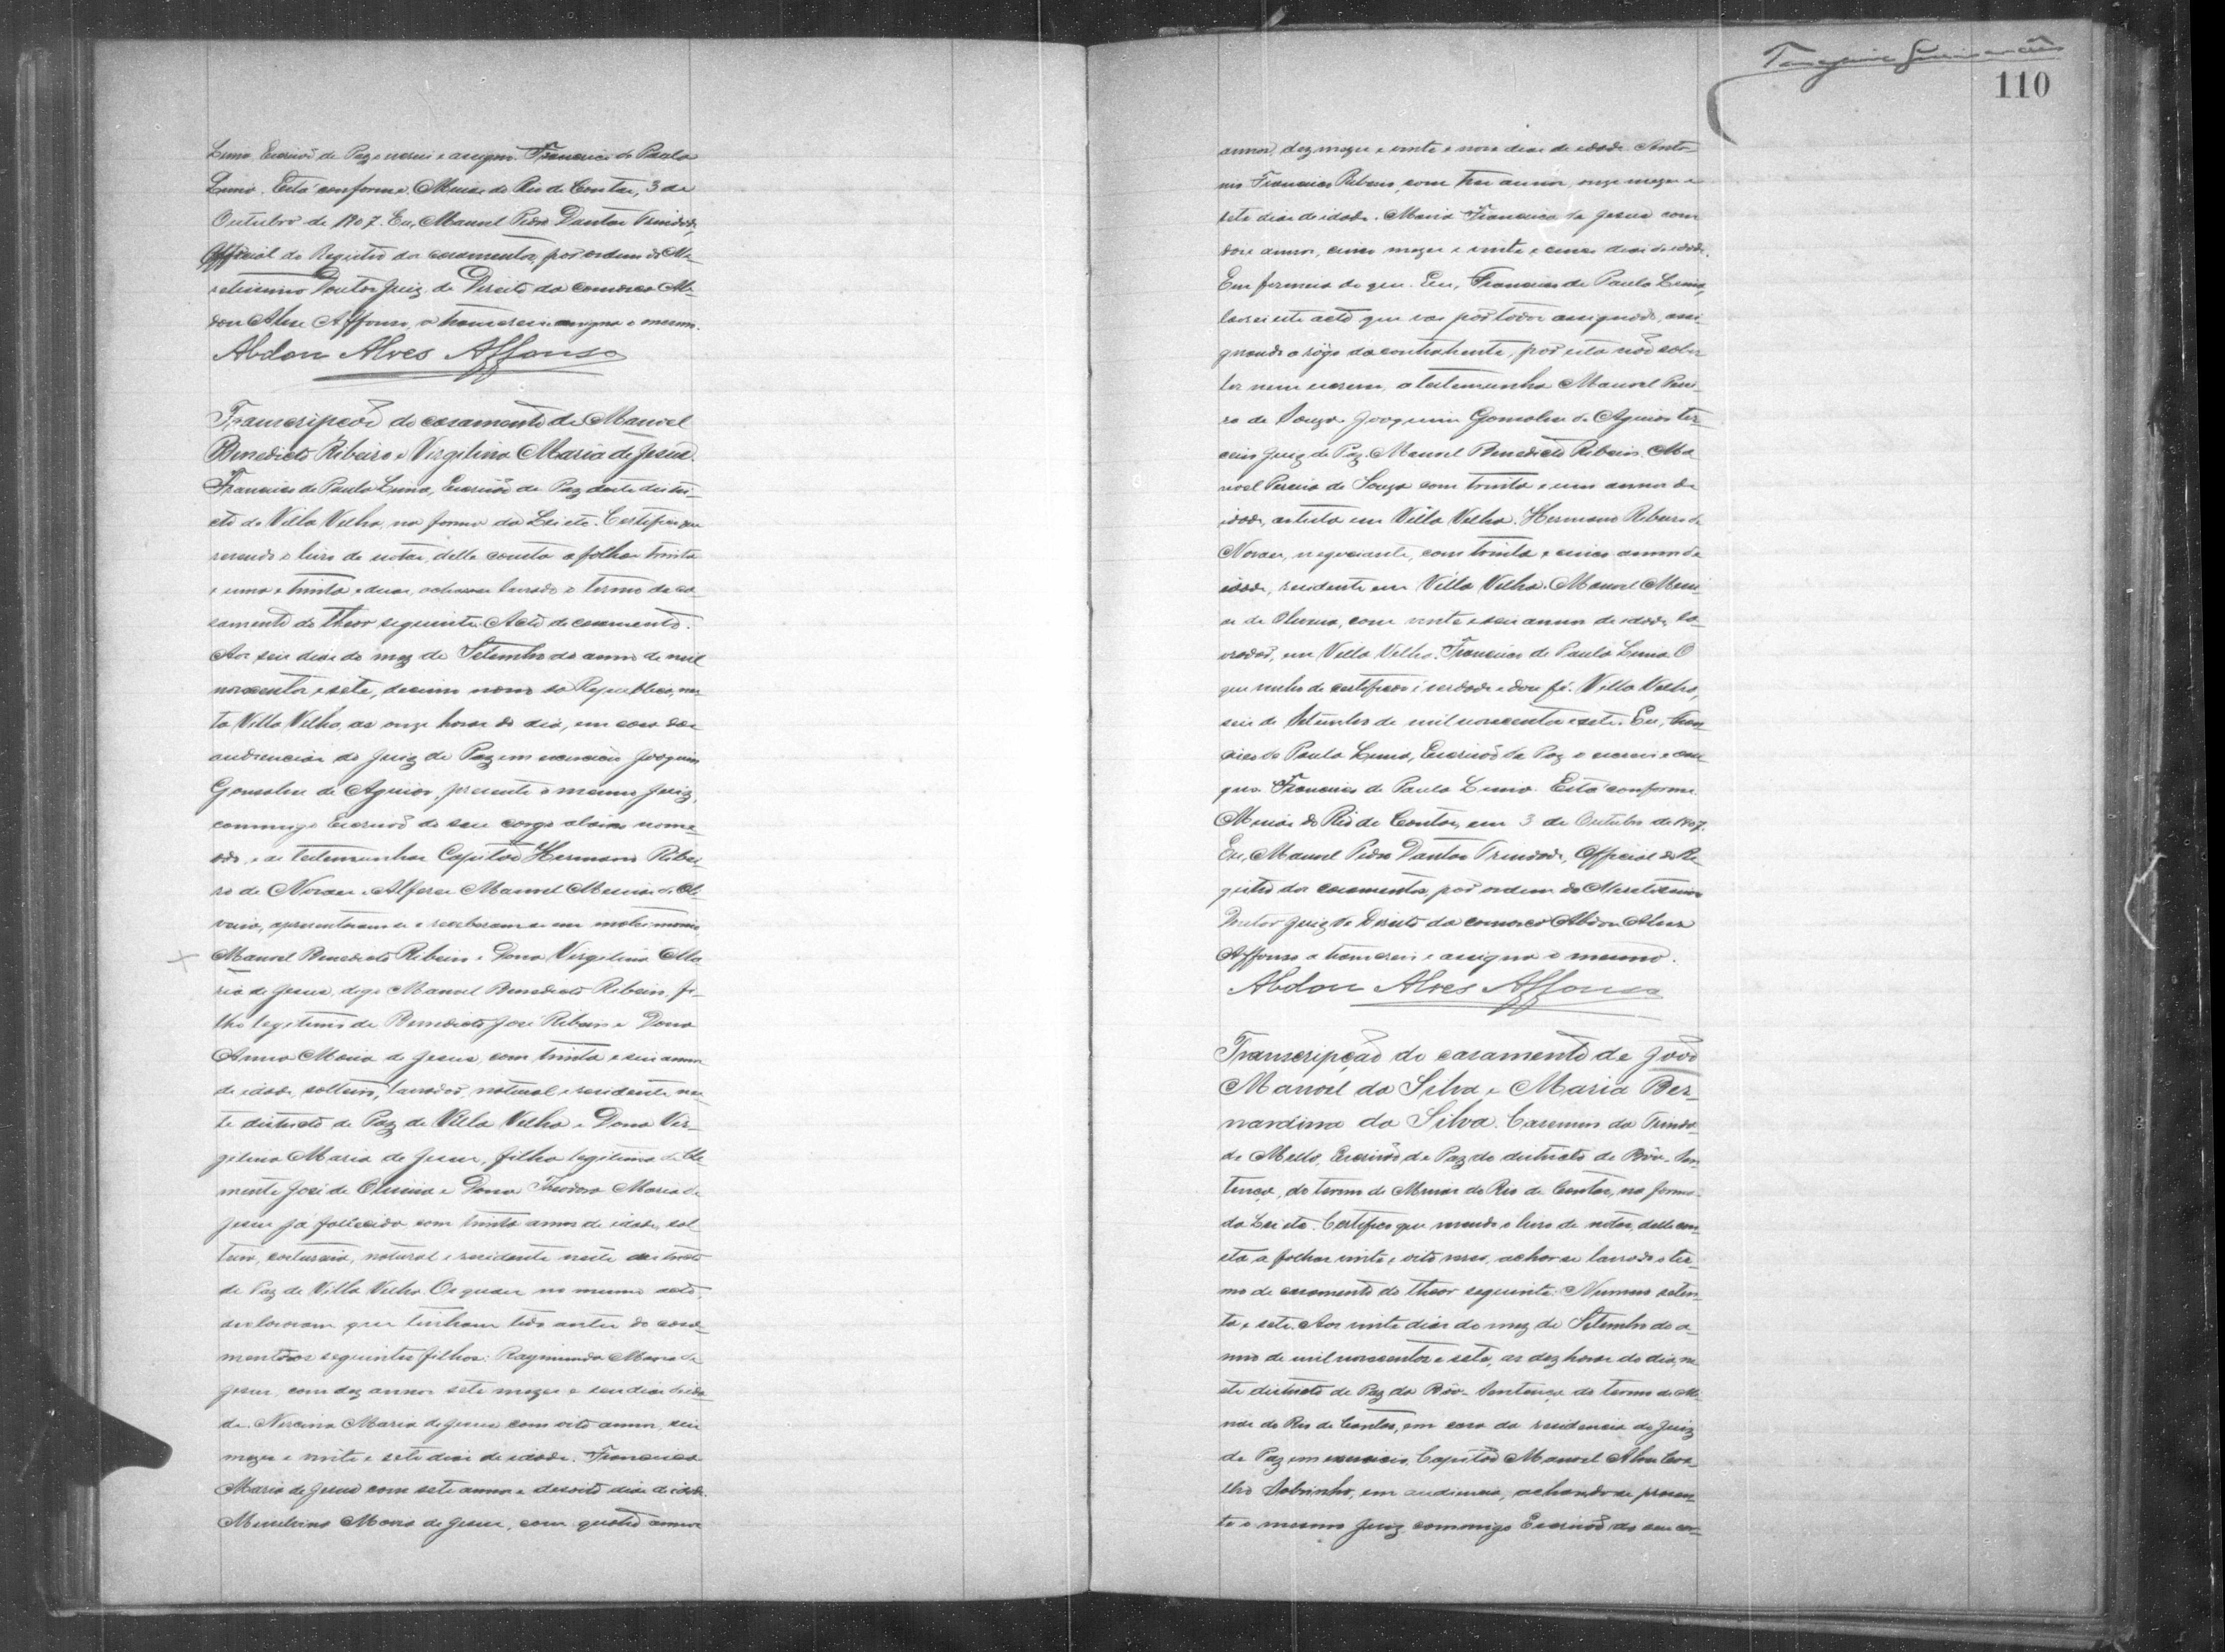 Lima, Escrivão de Paz o escrevi e assigno. Francisco de Paula
Lima. Está conforme. Minas do Rio de Contas, 3 de
Outubro de 1907. Eu, Manoel Pedro Dantas Trindade,
Official do Registro dos casamentos, por ordem do Me-
retissimo Doutor Juiz de Direito da comarca Ab-
don Alves Affonso, a transcrevi e assigna o mesmo.
Abdon Alves Affonso
Transcripção do casamento de Manoel
Benedicto Ribeiro e Virgilina Maria de Jesus.
Francisco de Paula Lima, Escrivão de Paz deste distri-
cto de Villa Velha, na forma da Lei etc. Certifico que
revendo o livro de notas, delle consta a folhas trinta
e uma e trinta e duas, achar-se lavrado o termo de ca-
samento do theor seguinte: Acto de casamento.
Aos seis dias do mez de Setembro do anno de mil
novecentos e sete, decimo nono da Republica, nes-
ta Villa Velha, as onze horas do dia, em casa das
audiencias do Juiz de Paz em exercicio Joaquim
Gonsalves de Aguiar, presente o mesmo Juiz,
commigo Escrivão do seu cargo abaixo nome-
ado, e as testemunhas Capitão Hermano Ribei-
ro de Novaes e Alferes Manoel Messias de Oli-
veira, apresentaram-se e receberam-se em matrimonio
Manoel Benedicto Ribeiro e Dona Virgilina Ma-
ria de Jesus, digo Manoel Benedicto Ribeiro, fi-
lho legitimo de Benedicto José Ribeiro e Dona
Anna Maria de Jesus, com trinta e seis annos
de idade, solteiro, lavrador, natural e residente nes-
te districto de Paz de Villa Velha e Dona Vir-
gilina Maria de Jesus, filha legitima de Cle-
mente José de Oliveira e Dona Theodora Maria de
Jesus já fallecida, com trinta annos de idade, sol-
teira, costureira, natural e residente neste districto
de Paz de Villa Velha. Os quaes no mesmo acto,
declararam que tinham tido antes do casa-
mento os seguintes filhos: Raymunda Maria de
Jesus, com dez annos sete mezes e seis dias de ida-
de. Maria de Jesus com oito annos, seis
mezes e vinte e sete dias de idade. Francisca
Maria de Jesus com sete annos e desoito dias de idade.
Maria de Jesus, com quatro annos
Guimarães
110
annos, dez mezes e vinte e nove dias de idade. Anto-
nio Francisco Ribeiro, com tres annos, onze mezes e
sete dias de idade. Maria Francisca de Jesus com
dois annos, cinco mezes e vinte e cinco dias de idade.
Em firmeza do que. Eu, Francisco de Paula Lima,
lavrei este acto que vae por todos assignado, assi-
gnando a rogo da contrahente, por esta não saber
ler nem escrever, a testemunha Manoel Perei-
ra de Souza. Joaquim Gonsalves de Aguiar ter-
ceiro Juiz de Paz. Manoel Benedicto Ribeiro. Ma-
noel Pereira de Souza com trinta e um annos de
idade, artista em Villa Velha. Hermano Ribeiro de
Novaes, negociante, com trinta e cinco annos de
idade, residente em Villa Velha. Manoel Messi-
as de Oliveira, com vinte e seis annos de idade, la-
vrador, em Villa Velha. Francisco de Paula Lima. O
que venho de certificar é verdade e dou fé. Villa Velha,
seis de Setembro de mil novecentos e sete. Eu, Fran-
cisco de Paula Lima, Escrivão de Paz o escrevi e assi-
gno. Francisco de Paula Lima. Está conforme.
Minas do Rio de Contas, em 3 de Outubro de 1907.
Eu, Manoel Pedro Dantas Trindade, Official do Re-
gistro dos casamentos, por ordem do Meretissimo
Doutor Juiz de Direito da comarca Abdon Alves
Affonso a transcrevi e assigna o mesmo.
Abdon Alves Affonso
Transcripção do casamento de João
Manoel da Silva e Maria Ber-
nardina da Silva. Casemiro da Trinda-
de Mello, Escrivão de Paz do districto de Bôa-Sen-
tença, do termo de Minas do Rio de Contas, na forma
da Lei etc. Certifico que revendo o livro de notas, delle cons-
ta a folhas vinte e oito verso, achar-se lavrado o ter-
mo de casamento do theor seguinte: Numero seten-
ta e sete. Aos vinte dias do mez de Setembro do a-
nno de mil novecentos e sete, as dez horas do dia, ne-
ste districto de Paz da Bôa-Sentença do termo de Mi-
nas do Rio de Contas, em casa da residencia do Juiz
de Paz em exercicio Capitão Manoel Alves Coe-
lho Sobrinho, em audiencia, achando-se presen-
te o mesmo Juiz commigo Escrivão do seu car-